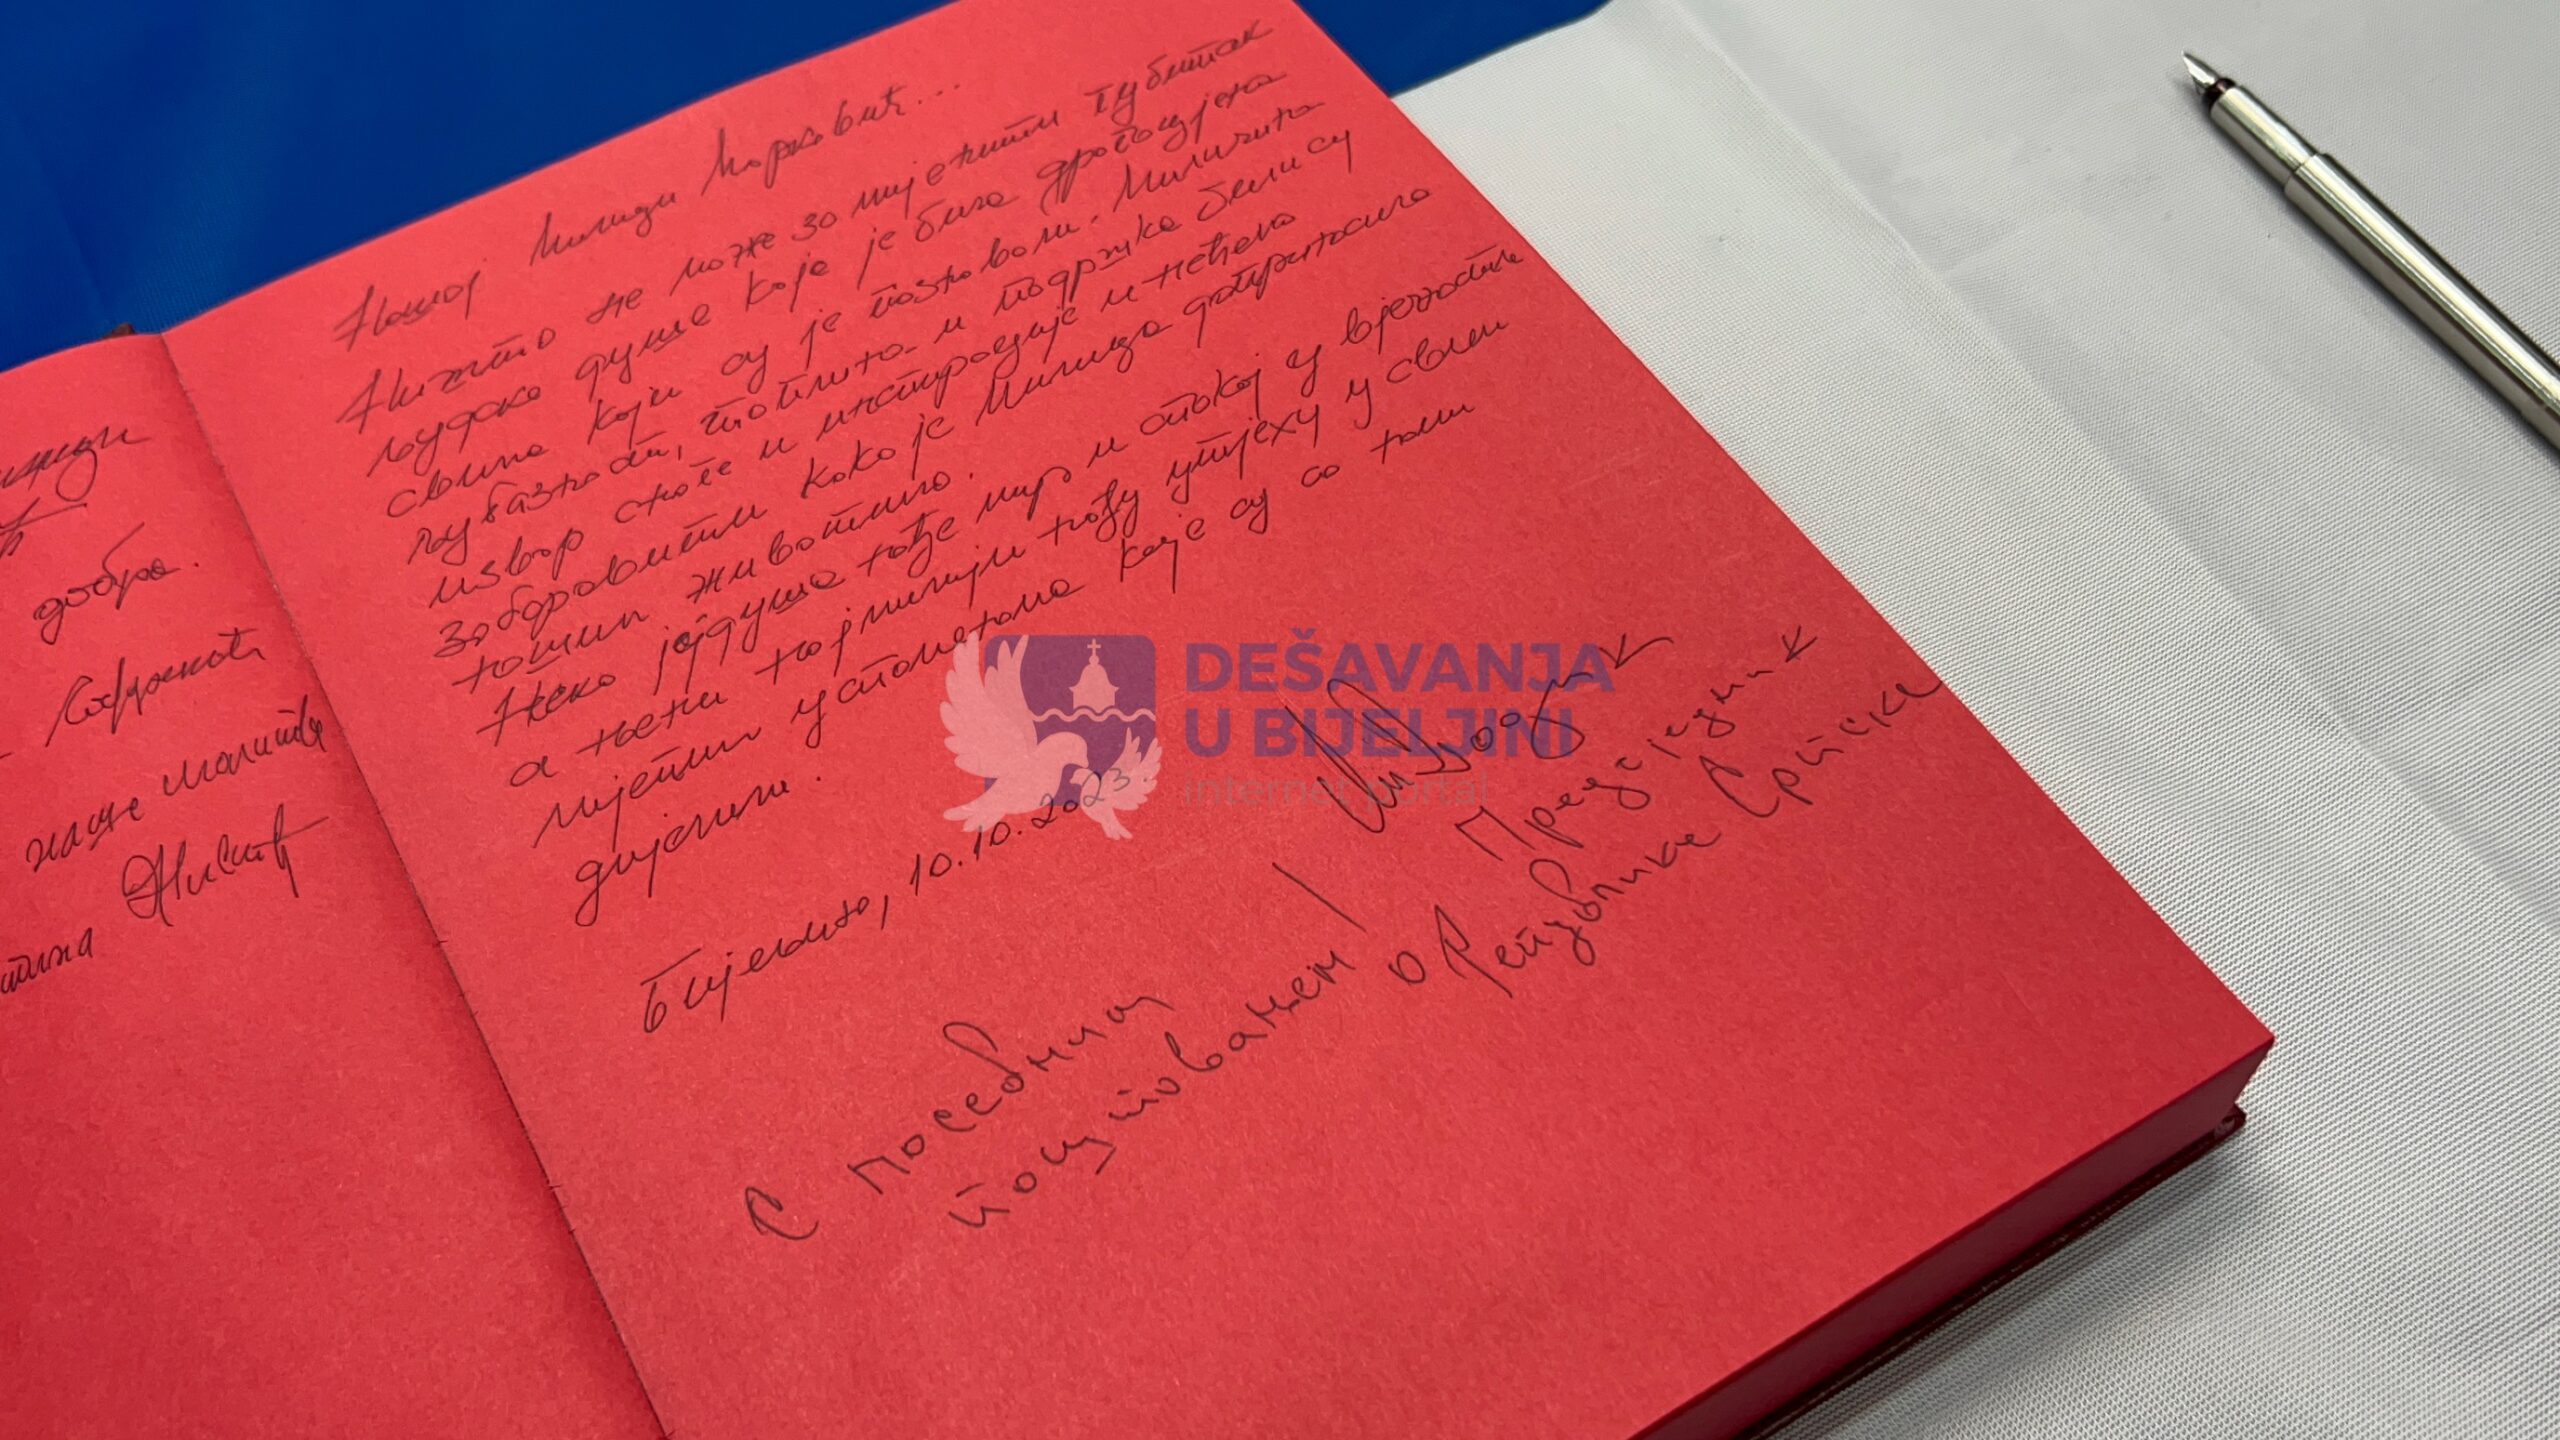 добра.
наше молитве
Нашој Милици Марковић...
Ништо не може замијенити губитак
људске душе која је била драгоцјена
свима који су је познавали. Миличина
љубазност, топлина и подршка били су
извор снаге и инспирације и нећемо
заборавити како је Милица доприносила
нашим животима.
Нека јој душа нађе мир и спокој у вјечности
а њени најмилији нађу утјеху у свим
лијепим успоменама које су са њом
дијелили.
Бијељина, 10.10.2023.
Предсједник
Републике Српске
С посебним
поштовањем
DEŠAVANJA
U BIJELJINI
internet portal